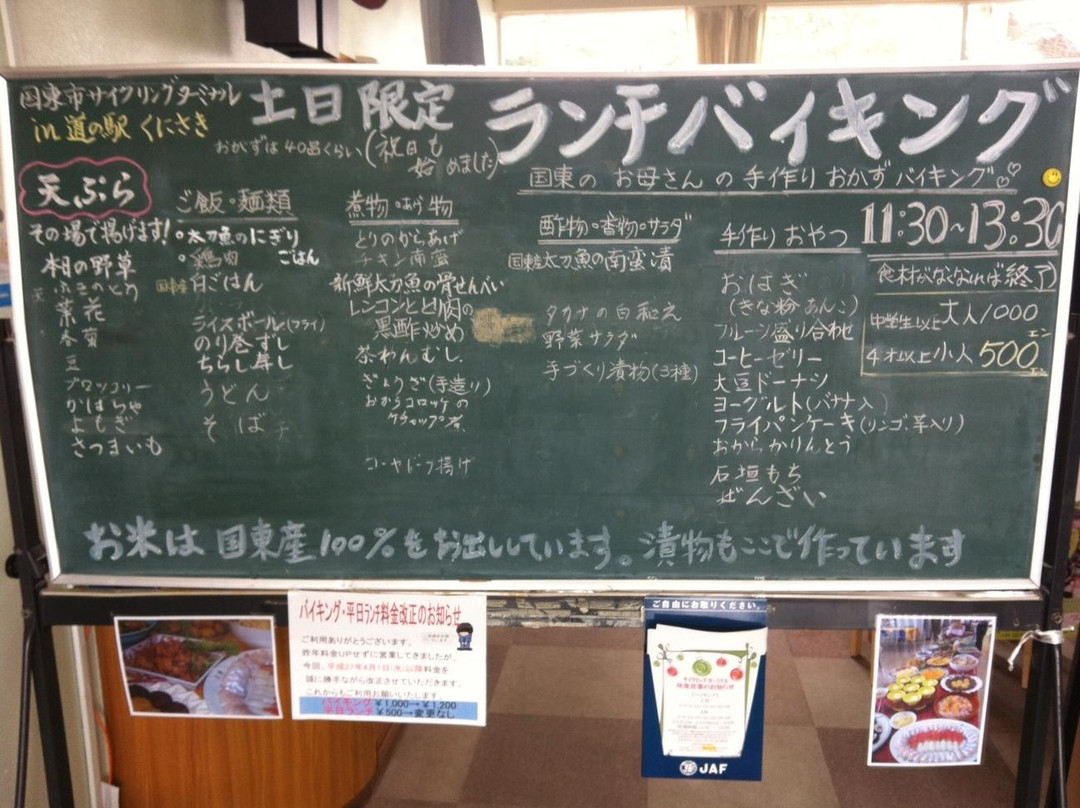 国東市サイクリングターミナル
in 道の駅 くにさき
土日限定
ランチバイキング
おかずは40品くらい
(祝日も
始めました)
国東の お母さん の 手作り おかず バイキング
天ぷら
その場で揚げます!
本日の野草
ふきのとう
菜花
春菊
豆
ブロッコリー
かぼちゃ
よもぎ
さつまいも
ご飯・麺類
太刀魚のにぎり
鶏肉 ごはん
国東産 白ごはん
ライスボール(フライ)
のり巻ずし
ちらし寿し
うどん
そば
煮物・あげ物
とりのからあげ
チキン南蛮
新鮮太刀魚の骨せんべい
レンコンととり肉の
黒酢炒め
茶わんむし
ぎょうざ(手造り)
おからコロッケの
ケチャップ煮
コーヤドーフ揚げ
酢物・香物・サラダ
国東産太刀魚の南蛮漬
タカナの白和え
野菜サラダ
手づくり漬物(3種)
手作りおやつ
おはぎ
(きな粉あんこ)
フルーツ盛り合わせ
コーヒーゼリー
大豆ドーナツ
ヨーグルト(バナナ入)
フライパンケーキ(リンゴ、芋入り)
おからかりんとう
石垣もち
ぜんざい
11:30~13:30
食材がなくなれば終了
中学生以上 大人1000
エン
4才以上 小人500
エン
お米は国東産100%をお出ししています。漬物もここで作っています
バイキング・平日ランチ料金改正のお知らせ
ご利用ありがとうございます。
昨年料金UPせずに営業してきましたが、
今回、平成27年4月1日(水)以降料金を
誠に勝手ながら改正させていただきます。
これからもご利用お願いいたします。
バイキング ¥1,000→¥1,200
平日ランチ ¥500→変更なし
ご自由にお取りください。
JAF